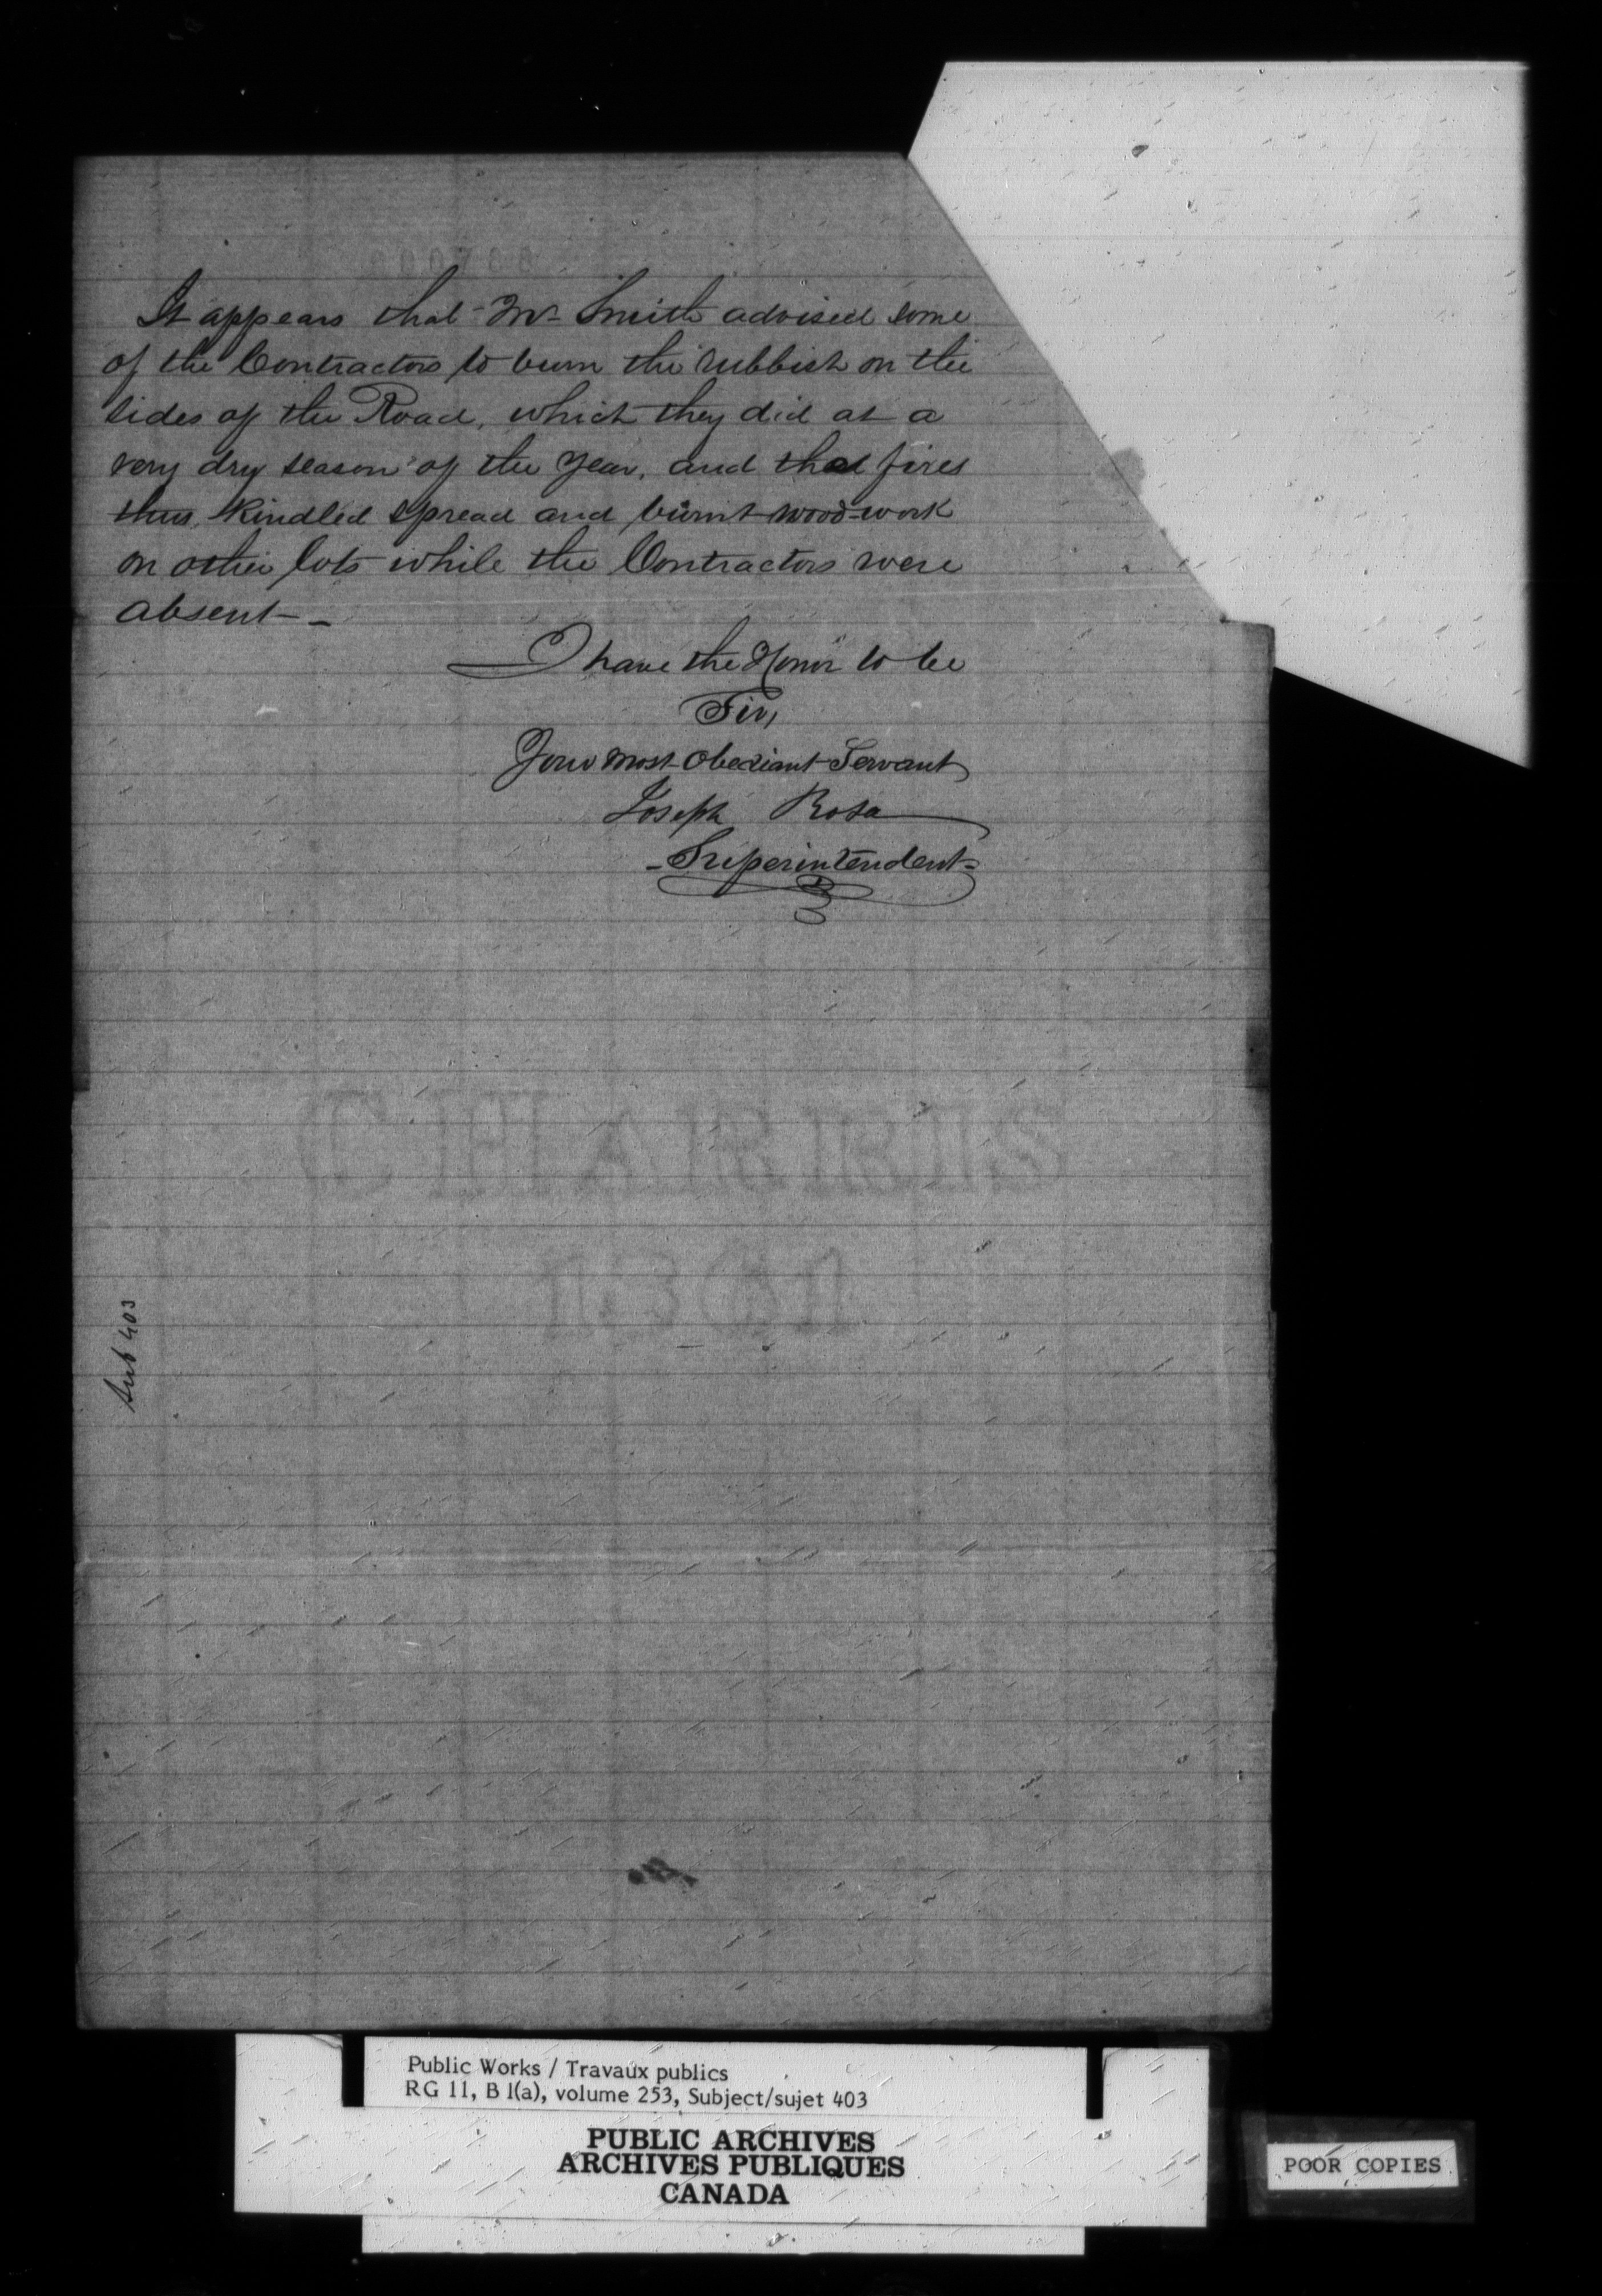 It appears that Mr Smith advised some
of the Contractors to burn the rubbish on the
sides of the Road, which they did at a
very dry season of the year, and that fires
thus kindled spread and burnt wood-work
on other lots while the Contractors were
absent -
I have the Honor to be
Sir,
Your most obediant Servant
Joseph Rosa
- Superintendent -
Sub 403
Public Works / Travaux publics
RG 11, B 1(a), volume 253, Subject/sujet 403
PUBLIC ARCHIVES
ARCHIVES PUBLIQUES
CANADA
POOR COPIES